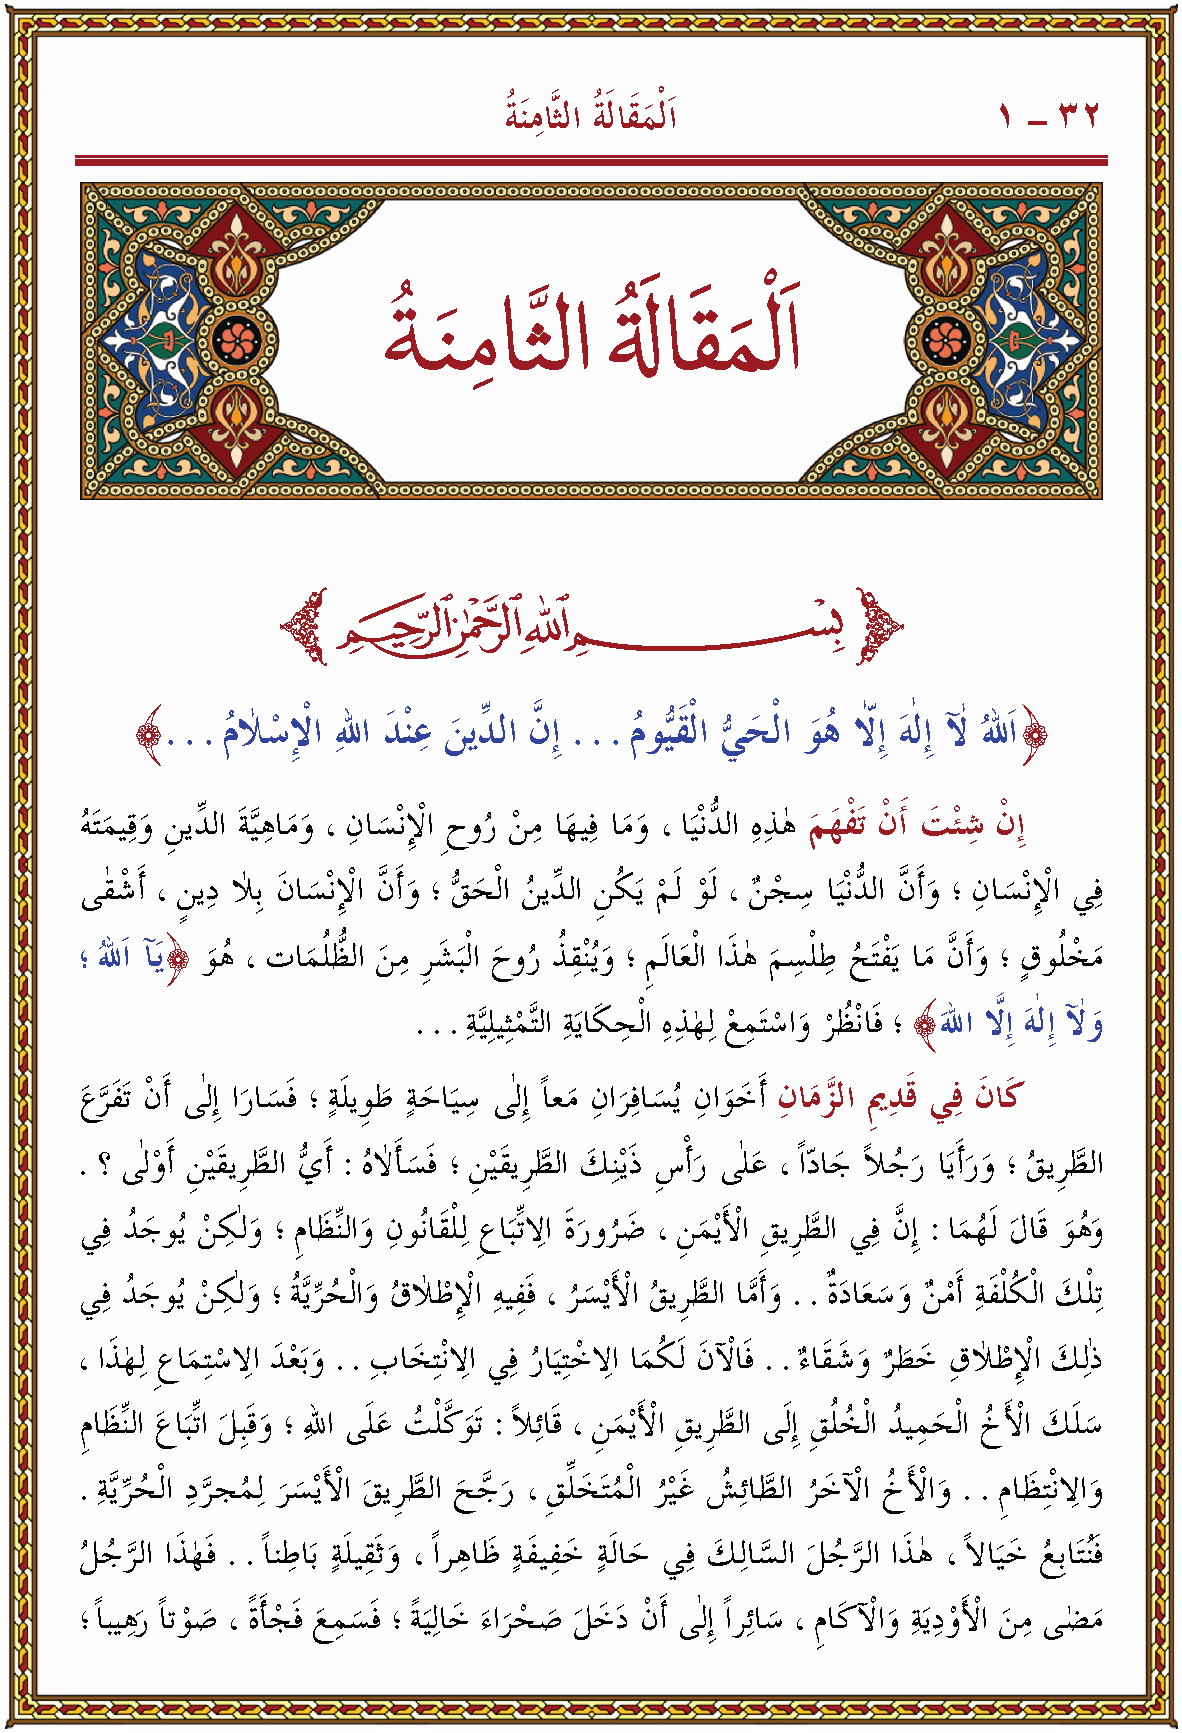 ٣٢ – ١ اَلْمَقَالَةُ الثَّامِنَةُ
اَلْمَقَالَةُ الثَّامِنَةُ
بِسْمِ ٱللهِ ٱلرَّحْمٰنِ ٱلرَّحِيمِ
﴿اَللهُ لَآ إِلٰهَ إِلَّا هُوَ الْحَيُّ الْقَيُّومُ . . . إِنَّ الدِّينَ عِنْدَ اللهِ الْإِسْلَامُ . . .﴾
إِنْ شِئْتَ أَنْ تَفْهَمَ هٰذِهِ الدُّنْيَا ، وَمَا فِيهَا مِنْ رُوحِ الْإِنْسَانِ ، وَمَاهِيَّةَ الدِّينِ وَقِيمَتَهُ
فِي الْإِنْسَانِ ؛ وَأَنَّ الدُّنْيَا سِجْنٌ ، لَوْ لَمْ يَكُنِ الدِّينُ الْحَقُّ ؛ وَأَنَّ الْإِنْسَانَ بِلَا دِينٍ ، أَشْقٰى
مَخْلُوقٍ ؛ وَأَنَّ مَا يَفْتَحُ طِلْسِمَ هٰذَا الْعَالَمِ ؛ وَيُنْقِذُ رُوحَ الْبَشَرِ مِنَ الظُّلُمَاتِ ، هُوَ ﴿يَآ اَللهُ ؛
وَلَآ إِلٰهَ إِلَّا اللهَ﴾ ؛ فَانْظُرْ وَاسْتَمِعْ لِهٰذِهِ الْحِكَايَةِ التَّمْثِيلِيَّةِ . . .
كَانَ فِي قَدِيمِ الزَّمَانِ أَخَوَانِ يُسَافِرَانِ مَعاً إِلٰى سِيَاحَةٍ طَوِيلَةٍ ؛ فَسَارَا إِلٰى أَنْ تَفَرَّعَ
الطَّرِيقُ ؛ وَرَأَيَا رَجُلاً جَادّاً ، عَلٰى رَأْسِ ذَيْنِكَ الطَّرِيقَيْنِ ؛ فَسَأَلَاهُ : أَيُّ الطَّرِيقَيْنِ أَوْلٰى ؟ .
وَهُوَ قَالَ لَهُمَا : إِنَّ فِي الطَّرِيقِ الْأَيْمَنِ ، ضَرُورَةَ الِاتِّبَاعِ لِلْقَانُونِ وَالنِّظَامِ ؛ وَلٰكِنْ يُوجَدُ فِي
تِلْكَ الْكُلْفَةِ أَمْنٌ وَسَعَادَةٌ . . وَأَمَّا الطَّرِيقُ الْأَيْسَرُ ، فَفِيهِ الْإِطْلَاقُ وَالْحُرِّيَّةُ ؛ وَلٰكِنْ يُوجَدُ فِي
ذٰلِكَ الْإِطْلَاقِ خَطَرٌ وَشَقَاءٌ . . فَالْآنَ لَكُمَا الِاخْتِيَارُ فِي الِانْتِخَابِ . . وَبَعْدَ الِاسْتِمَاعِ لِهٰذَا ،
سَلَكَ الْأَخُ الْحَمِيدُ الْخُلُقِ إِلَى الطَّرِيقِ الْأَيْمَنِ ، قَائِلاً : تَوَكَّلْتُ عَلَى اللهِ ؛ وَقَبِلَ اتِّبَاعَ النِّظَامِ
وَالِانْتِظَامِ . . وَالْأَخُ الْآخَرُ الطَّائِشُ غَيْرُ الْمُتَخَلِّقِ ، رَجَّحَ الطَّرِيقَ الْأَيْسَرَ لِمُجَرَّدِ الْحُرِّيَّةِ .
فَنُتَابِعُ خَيَالاً ، هٰذَا الرَّجُلَ السَّالِكَ فِي حَالَةٍ خَفِيفَةٍ ظَاهِراً ، وَثَقِيلَةٍ بَاطِناً . . فَهٰذَا الرَّجُلُ
مَضٰى مِنَ الْأَوْدِيَةِ وَالْآكَامِ ، سَائِراً إِلٰى أَنْ دَخَلَ صَحْرَاءَ خَالِيَةً ؛ فَسَمِعَ فَجْأَةً ، صَوْتاً رَهِيباً ؛